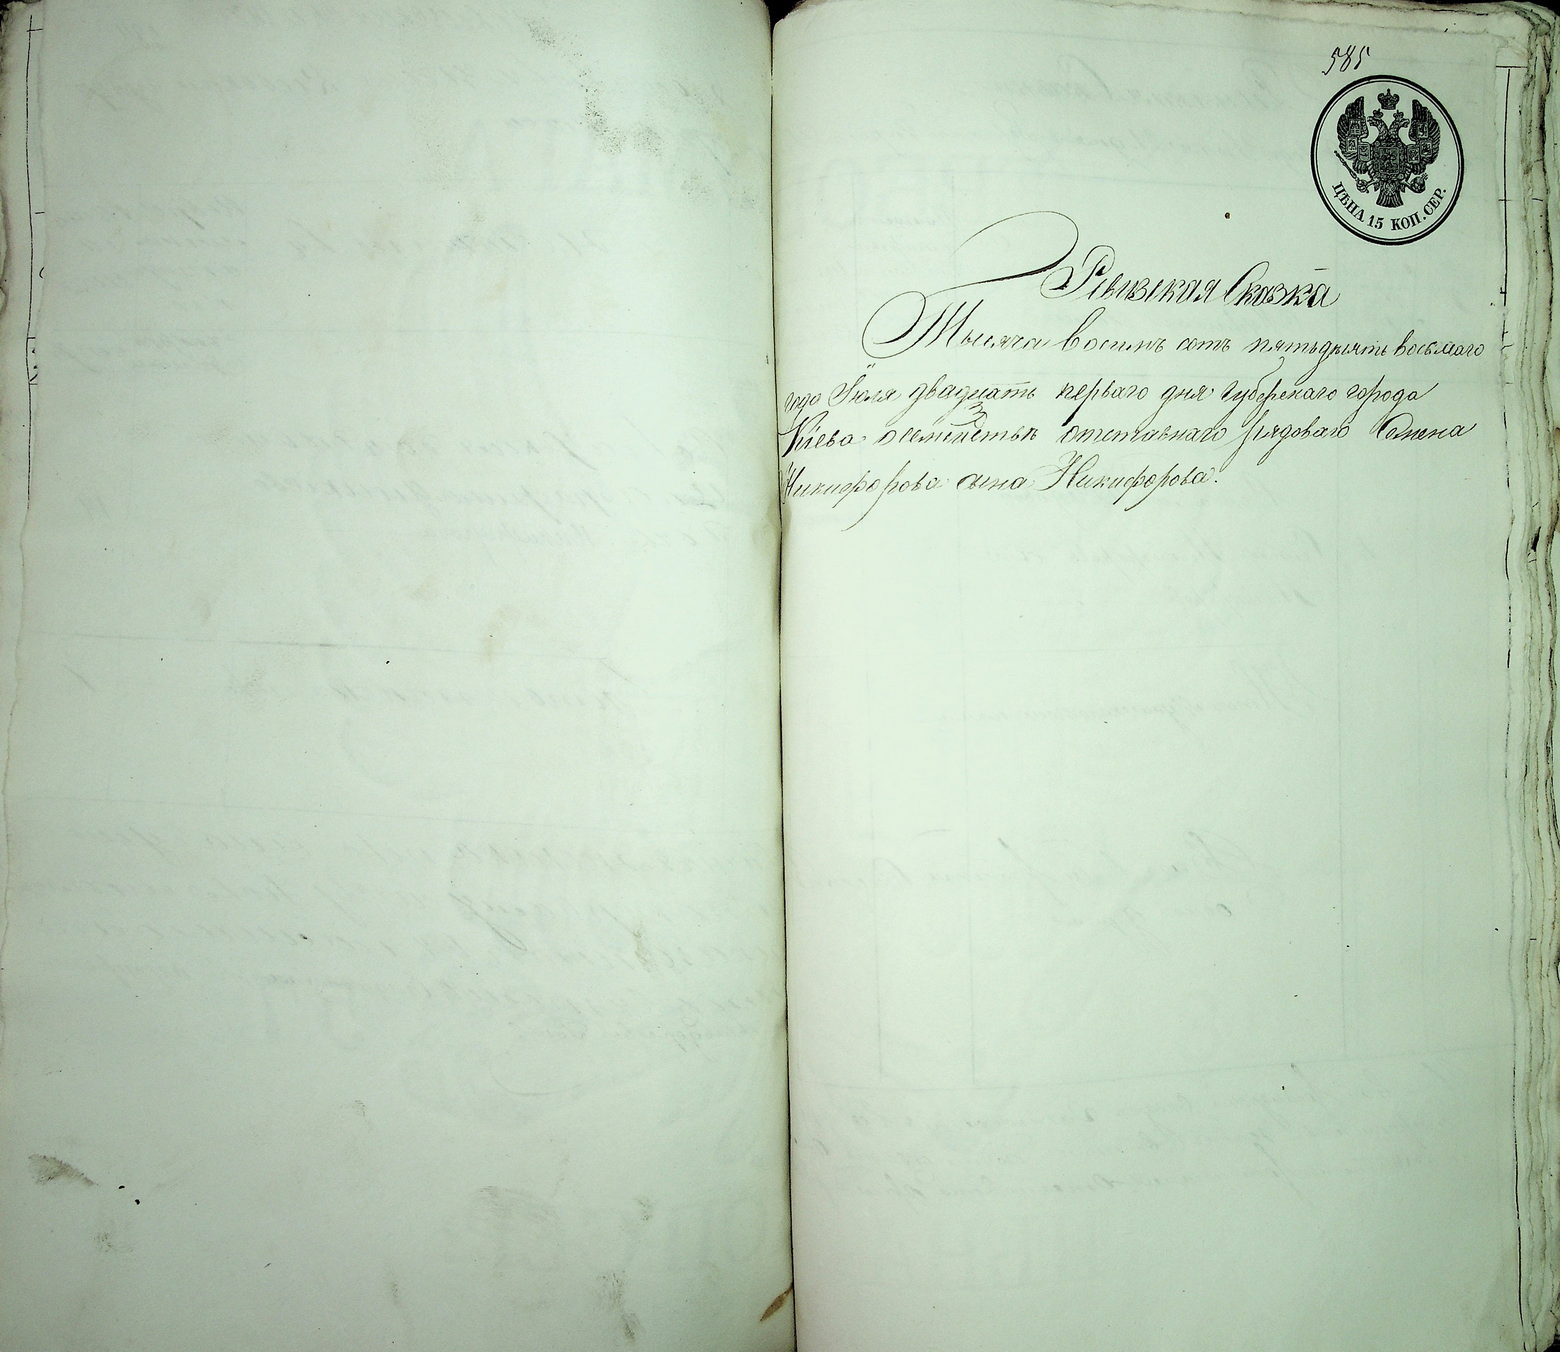 585
ЦѢНА 15 КОП. СЕР.
Ревизская Сказка
Тысяча восемь сотъ пятьдесятъ восьмого
года Іюля двадцать перваго дня Губернскаго города
Кіева о семействѣ отставнаго рядоваго Семена
Никифорова сына Никифорова.